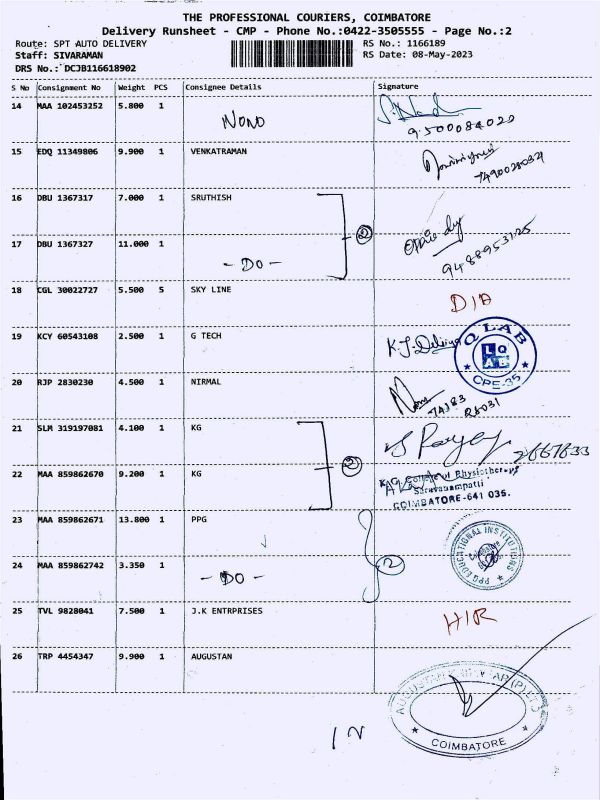 THE PROFESSIONAL COURIERS, COIMBATORE
Delivery Runsheet - CMP - Phone No.:0422-3505555 - Page No.:2
Route: SPT AUTO DELIVERY RS No.: 1166189
Staff: SIVARAMAN RS Date: 08-May-2023
DRS No.: DCJB116618902
S No Consignment No Weight PCS Consignee Details Signature
14 MAA 102453252 5.800 1 NONO
9500084020
15 EDQ 11349806 9.900 1 VENKATRAMAN
16 DBU 1367317 7.000 1 SRUTHISH
2
17 DBU 1367327 11.000 1 - DO -
9488953125
18 CGL 30022727 5.500 5 SKY LINE D/A
19 KCY 60543108 2.500 1 G TECH K.J.
Q LAB
LQ
CPE-35
20 RJP 2830230 4.500 1 NIRMAL
21 SLM 319197081 4.100 1 KG
2667633
2
22 MAA 859862670 9.200 1 KG
K.G. College of Physiotherapy
Saravanampatti
COIMBATORE-641 035.
23 MAA 859862671 13.800 1 PPG
PPG EDUCATIONAL INSTITUTIONS
Coimbatore
24 MAA 859862742 3.350 1 - DO -
2
25 TVL 9828041 7.500 1 J.K ENTRPRISES H/R
26 TRP 4454347 9.900 1 AUGUSTAN
COIMBATORE